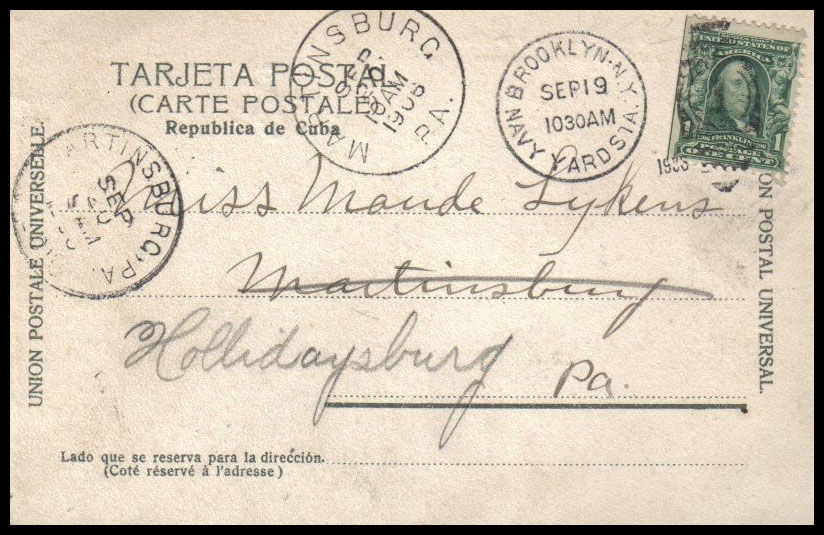 TARJETA POSTAL
(CARTE POSTALE)
Republica de Cuba
MARTINSBURG PA.
SEP
10 AM
1906
BROOKLYN-N.Y.
SEP 19
1030AM
NAVY YARD STA.
UNITED STATES OF
AMERICA
FRANKLIN
POSTAGE
1
ONE CENT
MARTINSBURG, PA.
SEP
UNION POSTALE UNIVERSELLE.
UNION POSTAL UNIVERSAL.
Miss Maude Lykens
Martinsburg
Hollidaysburg
Pa.
Lado que se reserva para la dirección.
(Coté réservé à l'adresse)